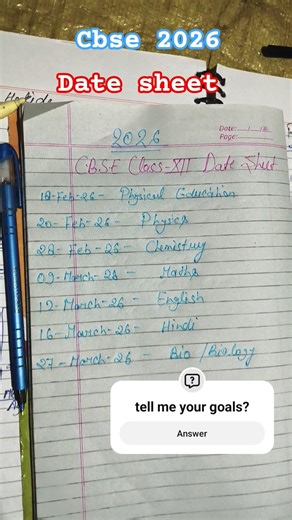 Cbse 2026
Date sheet
Date: / /
Page:
2026
CBSE Class-XII Date Sheet
18-Feb-26- Physical Education
20- Feb-26- Physics
28- Feb-26- Chemistry
09-March-26- Maths
12-March-26- English
16-March-26- Hindi
27-March-26- Bio/Biology
tell me your goals?
Answer